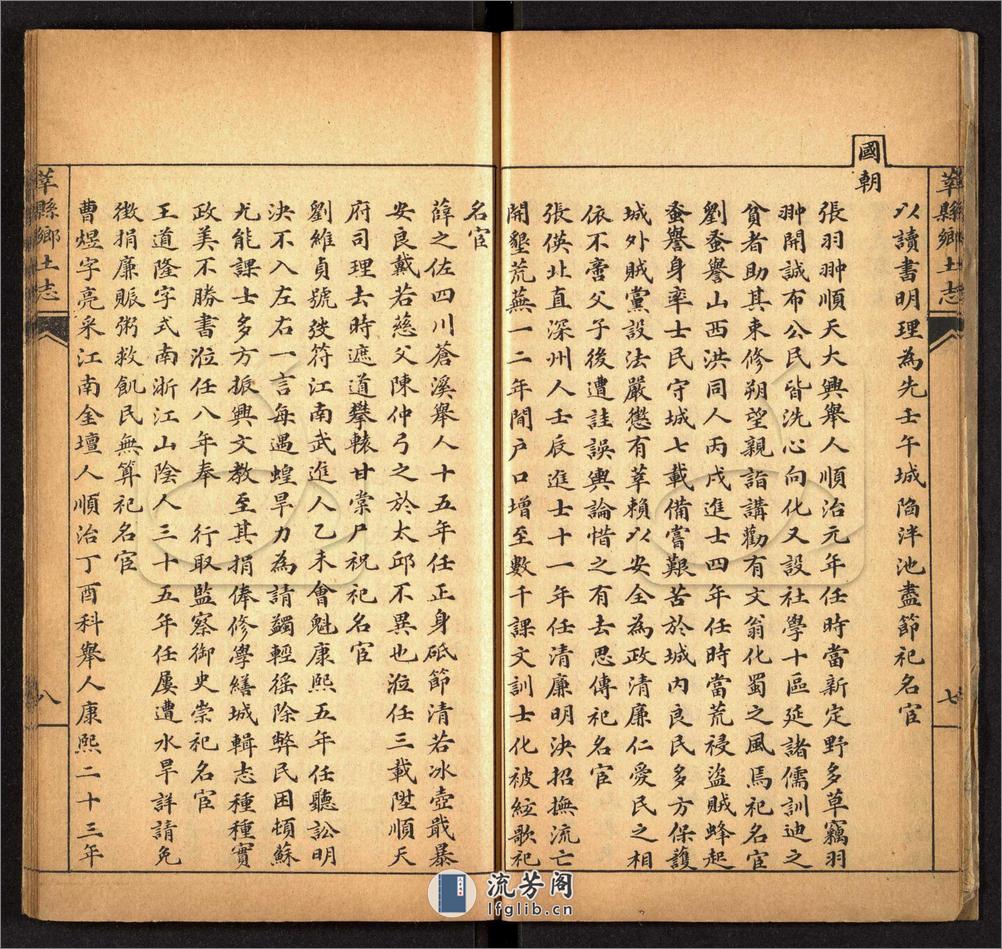 莘縣鄉土志
七
以讀書明理為先壬午城陷泮池盡節祀名宦
國朝
張羽翀順天大興舉人順治元年任時當新定野多草竊羽
翀開誠布公民皆洗心向化又設社學十區延諸儒訓迪之
貧者助其束修朔望親詣講勸有文翁化蜀之風焉祀名宦
劉蚤譽山西洪同人丙戌進士四年任時當荒祲盜賊蜂起
蚤譽身率士民守城七載備嘗艱苦於城內良民多方保護
城外賊黨設法嚴懲有莘賴以安全為政清廉仁愛民之相
依不啻父子後遭詿誤輿論惜之有去思傳祀名宦
張偀北直深州人壬辰進士十一年任清廉明決招撫流亡
開墾荒蕪一二年間户口增至數千課文訓士化被絃歌祀
名宦
薛之佐四川蒼溪舉人十五年任正身砥節清若冰壺戢暴
安良戴若慈父陳仲弓之於太邱不異也涖任三載陞順天
府司理去時遮道攀轅甘棠尸祝祀名宦
劉維貞號玅符江南武進人乙未會魁康熙五年任聽訟明
決不入左右一言每遇蝗旱力為請蠲輕徭除弊民困頓蘇
尤能課士多方振興文教至其捐俸修學繕城輯志種種實
政美不勝書涖任八年奉　行取監察御史崇祀名宦
王道隆字式南浙江山陰人三十五年任屢遭水旱詳請免
徵捐廉賑粥救飢民無算祀名宦
曹煜字亮采江南金壇人順治丁酉科舉人康熙二十三年
莘縣鄉土志
八
流芳阁
lfglib.cn